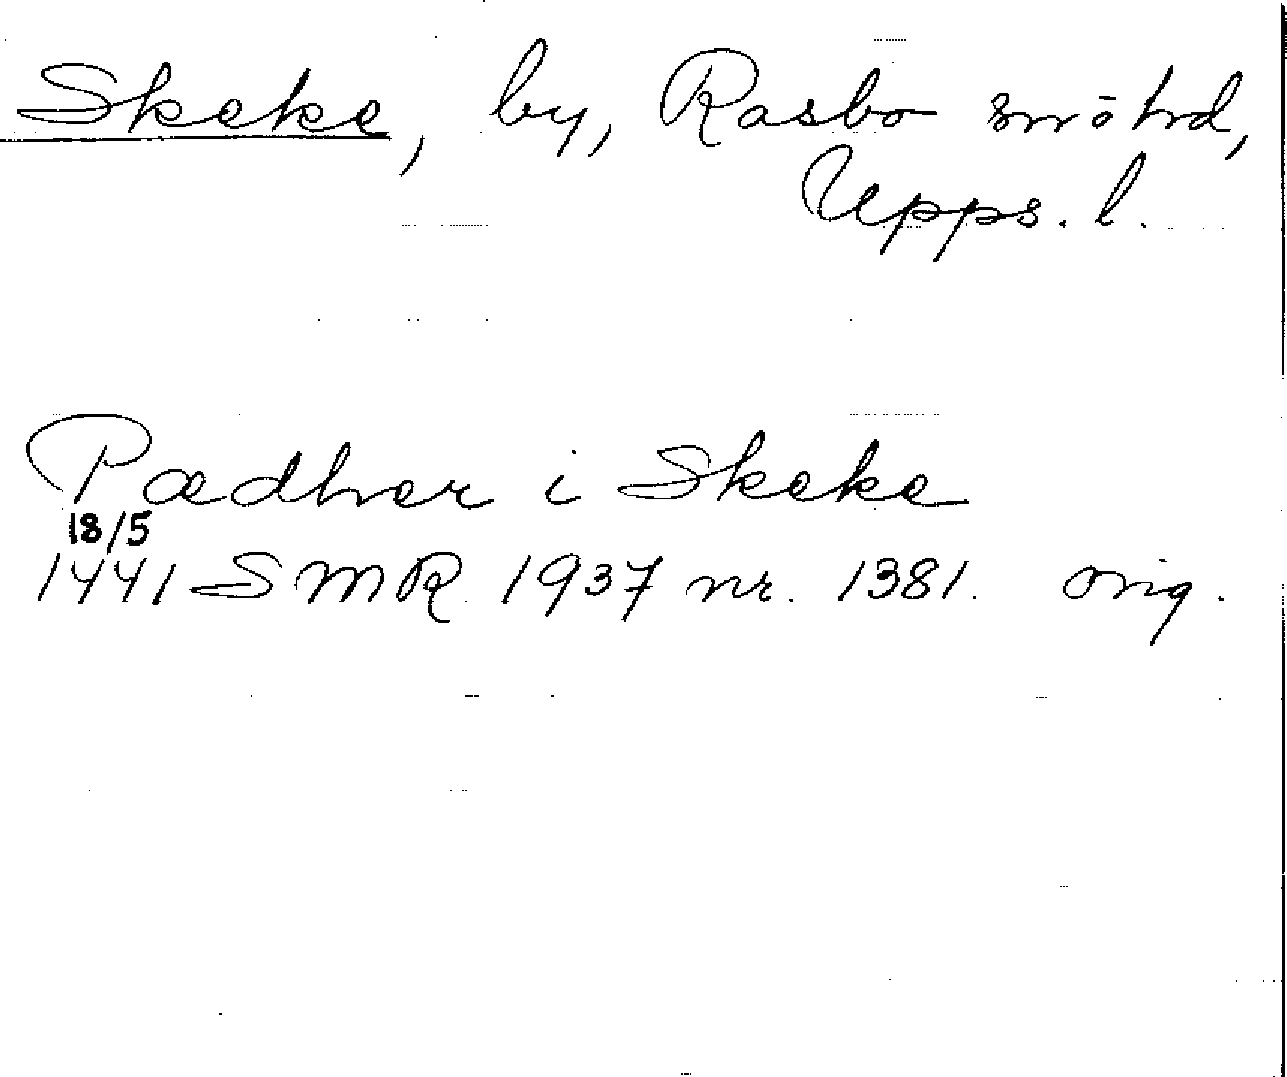 Skeke, by, Rasbo sn o hd,
Upps. l.
Pædher i Skeke
18/5
1441 SMR 1937 nr. 1381. orig.